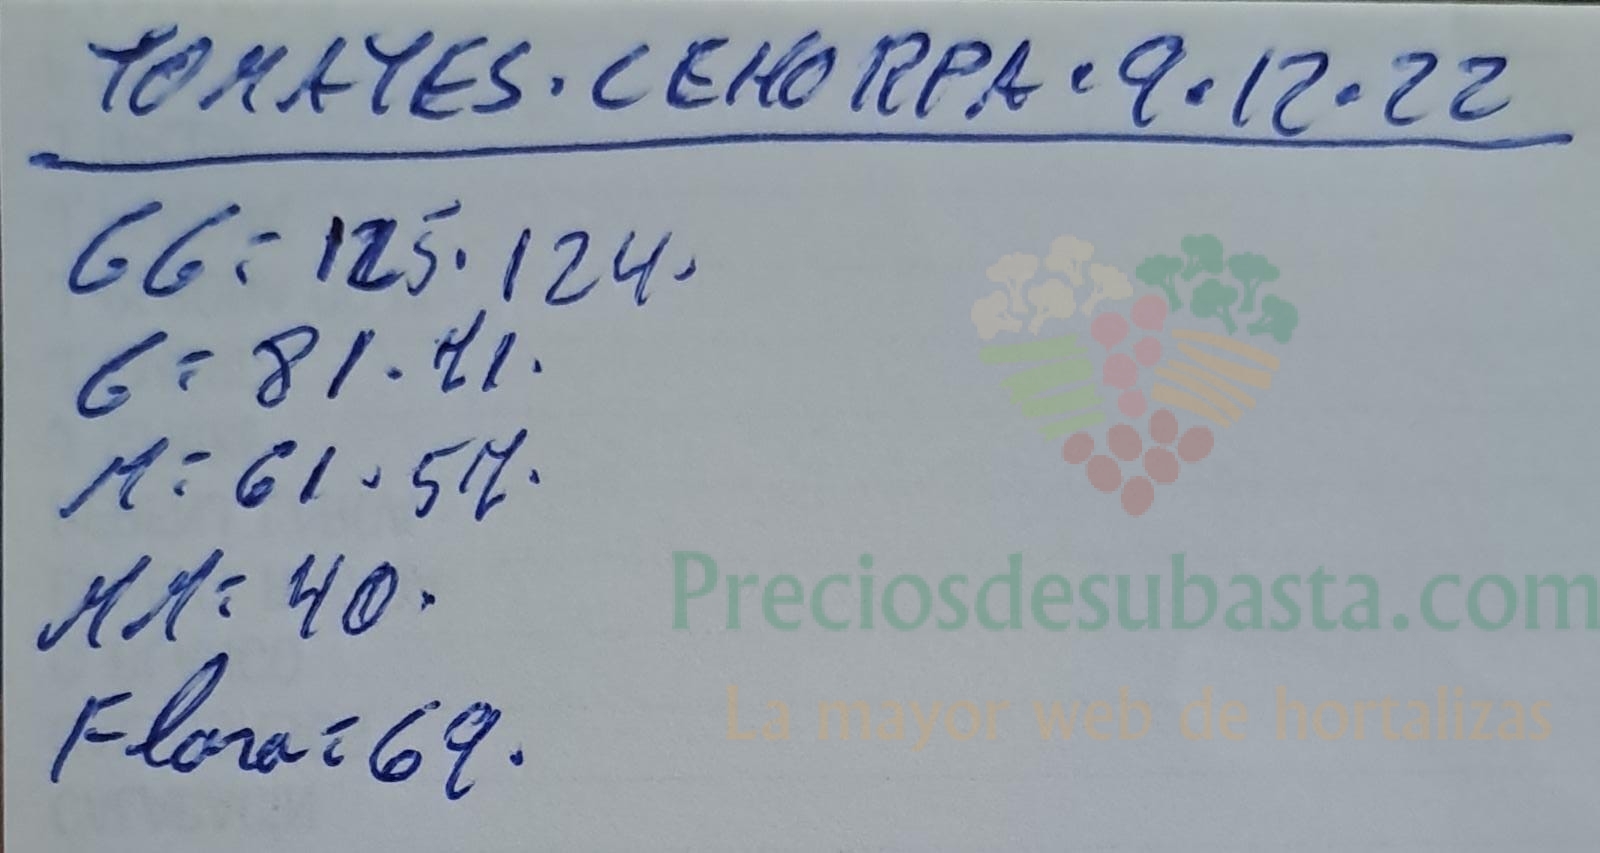 TOMATES. CEHORPA. 9.12.22
GG= 125. 124.
G= 81. 71.
M= 61. 57.
MM= 40.
Flora= 69.
Preciosdesubasta.com
La mayor web de hortalizas